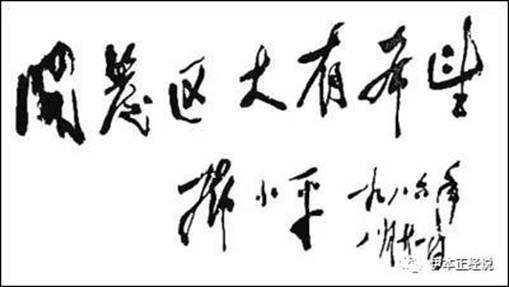 开发区大有希望
邓小平 一九八六年
八月廿一日
伊本正经说